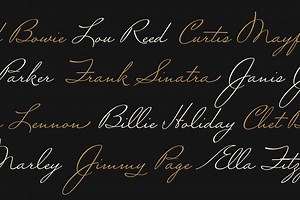 d Bowie Lou Reed Curtis Mayf
Parker Frank Sinatra Janis J
n Lennon Billie Holiday Chet B
Marley Jimmy Page Ella Fitz